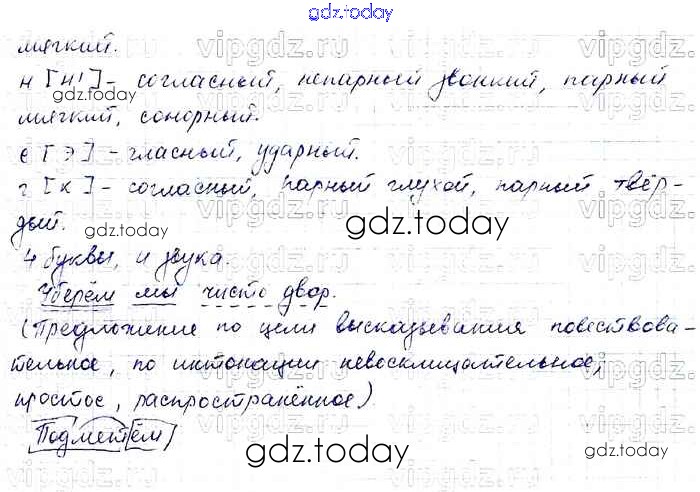 gdz.today
мягкий.
н [н'] - согласный, непарный звонкий, парный
мягкий, сонорный.
е [э] - гласный, ударный.
г [к] - согласный, парный глухой, парный твёр-
дый.
4 буквы, 4 звука.
Уберём мы чисто двор.
(Предложение по цели высказывания повествова-
тельное, по интонации невосклицательное,
простое, распространённое)
Подметём
gdz.today
gdz.today
gdz.today
gdz.today
gdz.today
gdz.today